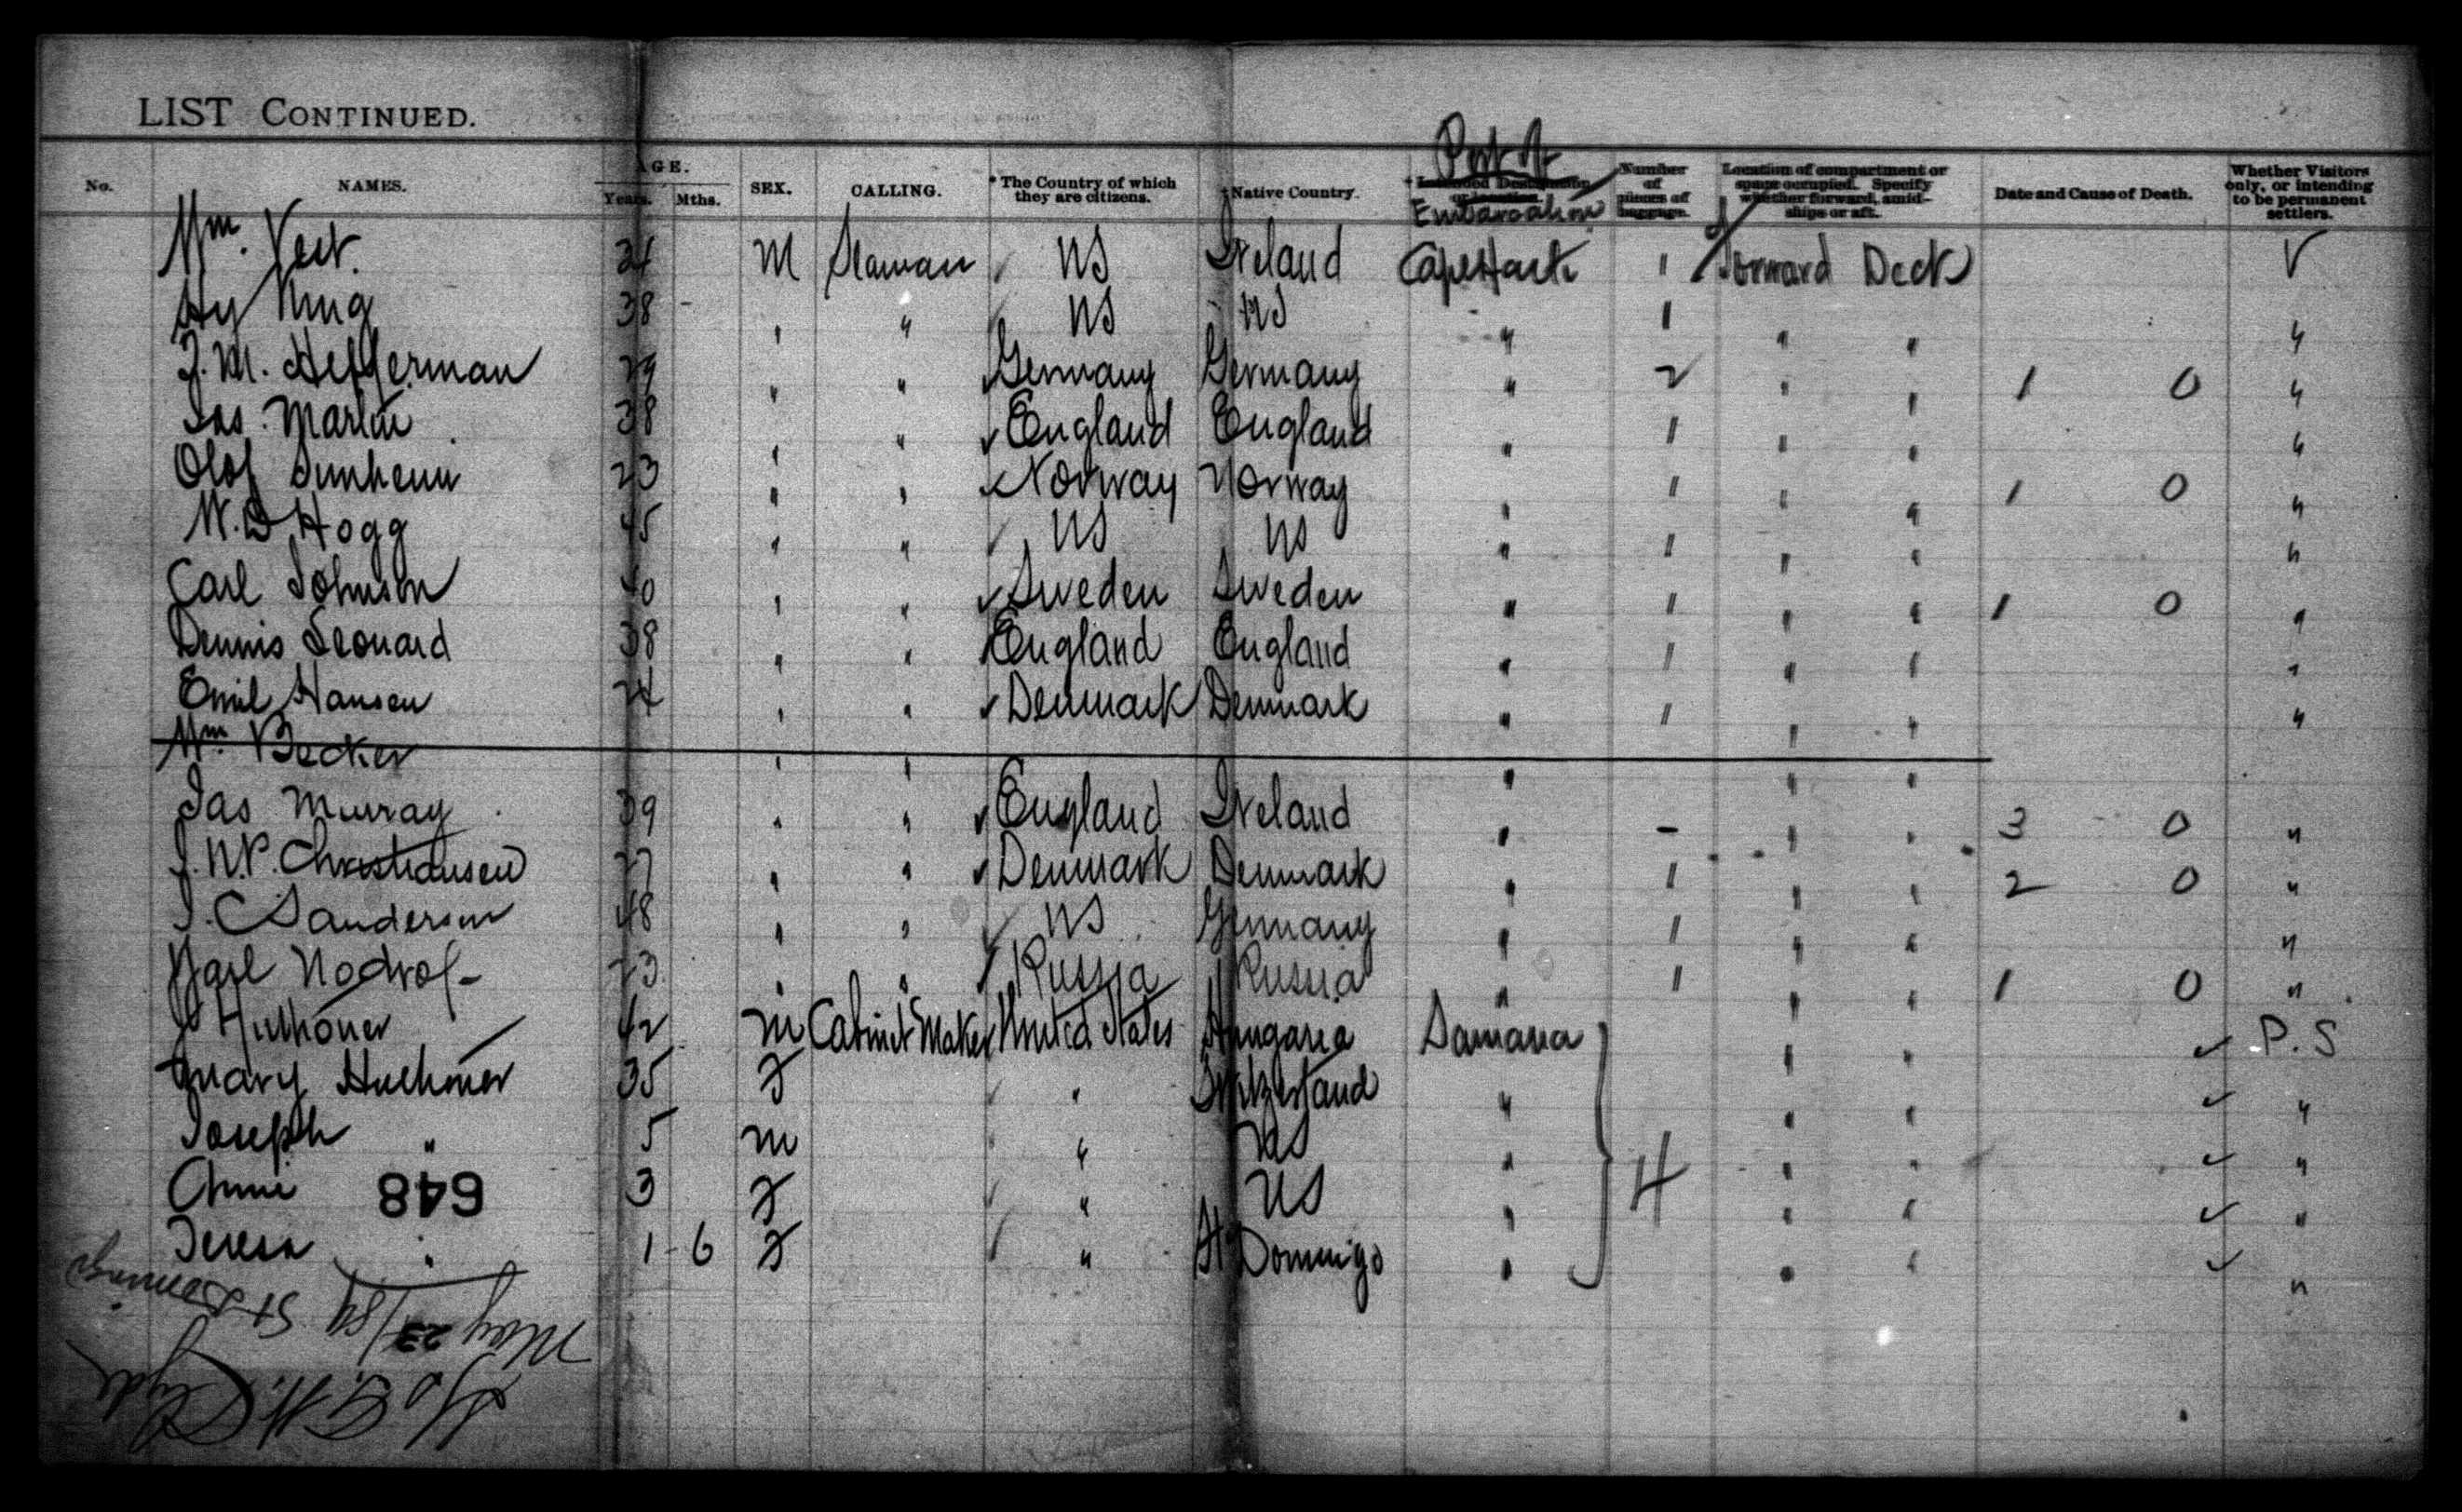 LIST CONTINUED.
No. NAMES. AGE. Years. Mths. SEX. CALLING. * The Country of which they are citizens. † Native Country. Port of Embarcation Number of pieces of baggage. Location of compartment or space occupied. Specify whether forward, amidships or aft. Date and Cause of Death. Whether Visitors only, or intending to be permanent settlers.
Wm. 34 M Seaman US Ireland 1 Forward Deck V
Hy King 38 - " " US US " 1 " " "
J. M. Hefferman 29 " " Germany Germany " 2 " " 1 0 "
Jas. Martin 38 " " England England " 1 " " "
Olof 23 " " Norway Norway " 1 " " 1 0 "
W. D Hogg 45 " " US US " 1 " " "
Carl Johnson 40 " " Sweden Sweden " 1 " " 1 0 "
Dennis Leonard 38 " " England England " 1 " " "
Emil Hansen 24 " " Denmark Denmark " 1 " " "
Wm Becker " " " " "
Jas Murray 39 " " England Ireland " - " " 3 0 "
J. N. P. Christiansen 27 " " Denmark Denmark " 1 " " 2 0 "
J. C Sanderson 48 " " US Germany " 1 " " "
Karl 23 " " Russia Russia " 1 " " 1 0 "
J 42 M Cabinet Maker United States Hungaria Samana " " P. S
Mary 35 F " Switzerland " " " "
Joseph " 5 M " US " " " "
Annie 3 F " US " 4 " " "
648
Teresa " 1 6 F " St Domingo " " " "
May 23/89 St Domingo
G. W. Clyde